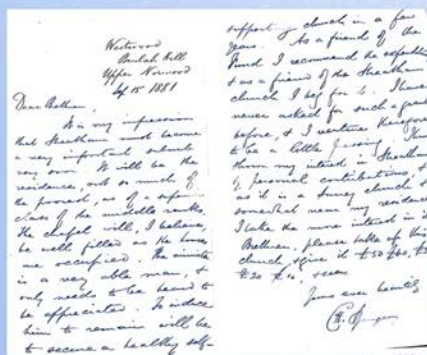 Westwood
Beulah Hill
Upper Norwood
Sep 15 1881
Dear Brethren,
It is my impression
that Streatham must become
a very important suburb
very soon. It will be the
residence, not so much of
the poorest, as of a superior
class of the middle ranks.
The chapel will, I believe,
be well filled as the houses
are occupied. The minister
is a very able man, &
only needs to be heard to
be appreciated. To induce
him to remain will be
to secure a healthy self-
supporting church in a few
years. As a friend of the
Fund I recommend the
& as a friend of the Streatham
church I beg for it. I have
never asked for such a grant
before, & I venture therefore
to be a little pressing. I have
shown my interest in Streatham
by personal contributions, &
as it is a Surrey church &
somewhat near my residence
I take the more interest in it.
Brethren, please take up this
church, & give it £50
£20 £10, &
Yours ever heartily
C H Spurgeon